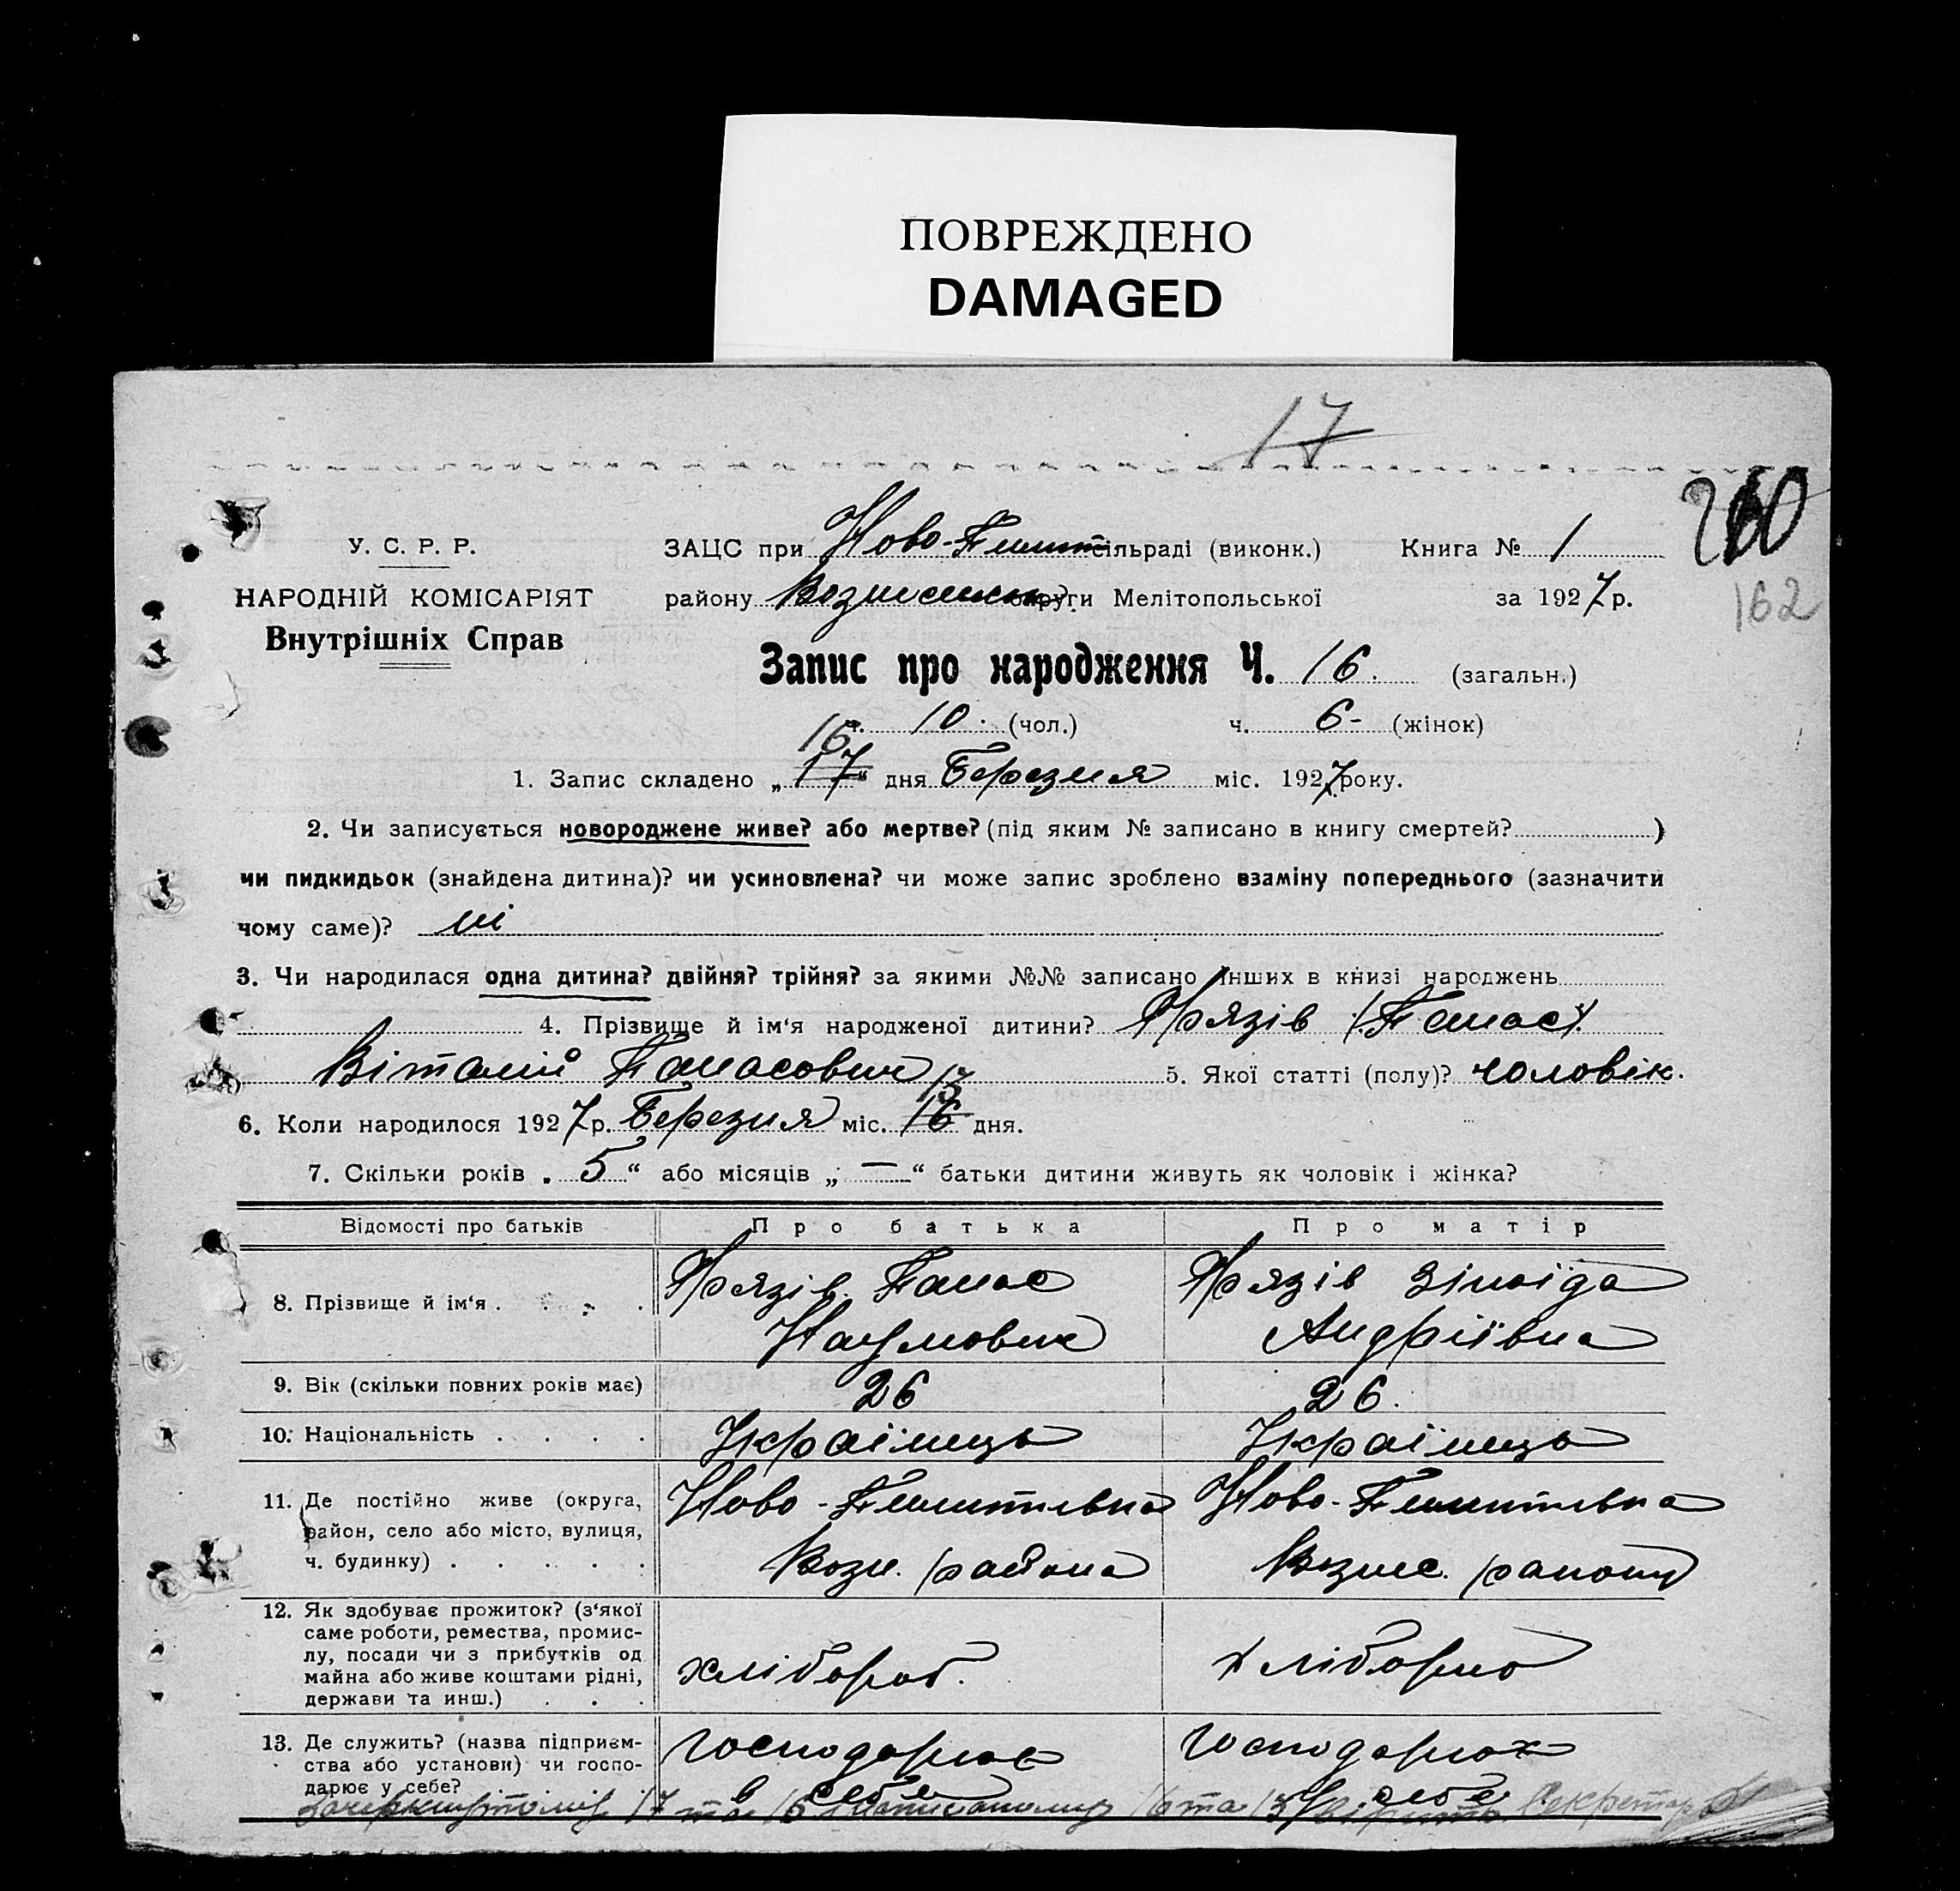 ПОВРЕЖДЕНО
DAMAGED
17
У. С. Р. Р.
НАРОДНІЙ КОМІСАРІЯТ
Внутрішніх Справ
ЗАЦС при Ново- сільраді (виконк.) Книга № 1
160
району округи Мелітопольської за 1927 р.
162
Запис про народження Ч. 16. (загальн.)
ч. 10. (чол.) ч. 6- (жінок)
16
1. Запис складено „ 17 “ дня Березня міс. 1927 року.
2. Чи записується новороджене живе? або мертве? (під яким № записано в книгу смертей? )
чи пидкидьок (знайдена дитина)? чи усиновлена? чи може запис зроблено взаміну попереднього (зазначити
чому саме)? ні
3. Чи народилася одна дитина? двійня? трійня? за якими №№ записано інших в книзі народжень
4. Прізвище й ім‘я народженої дитини? Фрязів (Панас)
Віталій Панасович 5. Якої статті (полу)? чоловік.
13
6. Коли народилося 1927 р. Березня міс. 16 дня.
7. Скільки років „ 5 “ або місяців „ — “ батьки дитини живуть як чоловік і жінка?
Відомості про батьків Про батька Про матір
8. Прізвище й ім‘я . . . . Фрязів Панас Наумович Фрязів Зіноїда Андріївна
9. Вік (скільки повних років має) 26 26.
10. Національність . . . . Українець Українець
11. Де постійно живе (округа,
район, село або місто, вулиця,
ч. будинку) . . . . .
Ново- Ново-
Возн. района Вознес. району
12. Як здобуває прожиток? (з‘якої
саме роботи, ремества, промис-
лу, посади чи з прибутків од
майна або живе коштами рідні,
держави та инш.) . . .
хлібороб. хліборно
13. Де служить? (назва підприєм-
ства або установи) чи госпо-
дарює у себе?
господарює в себе господарює у себе
17 та 16 16 та 13 Секретар